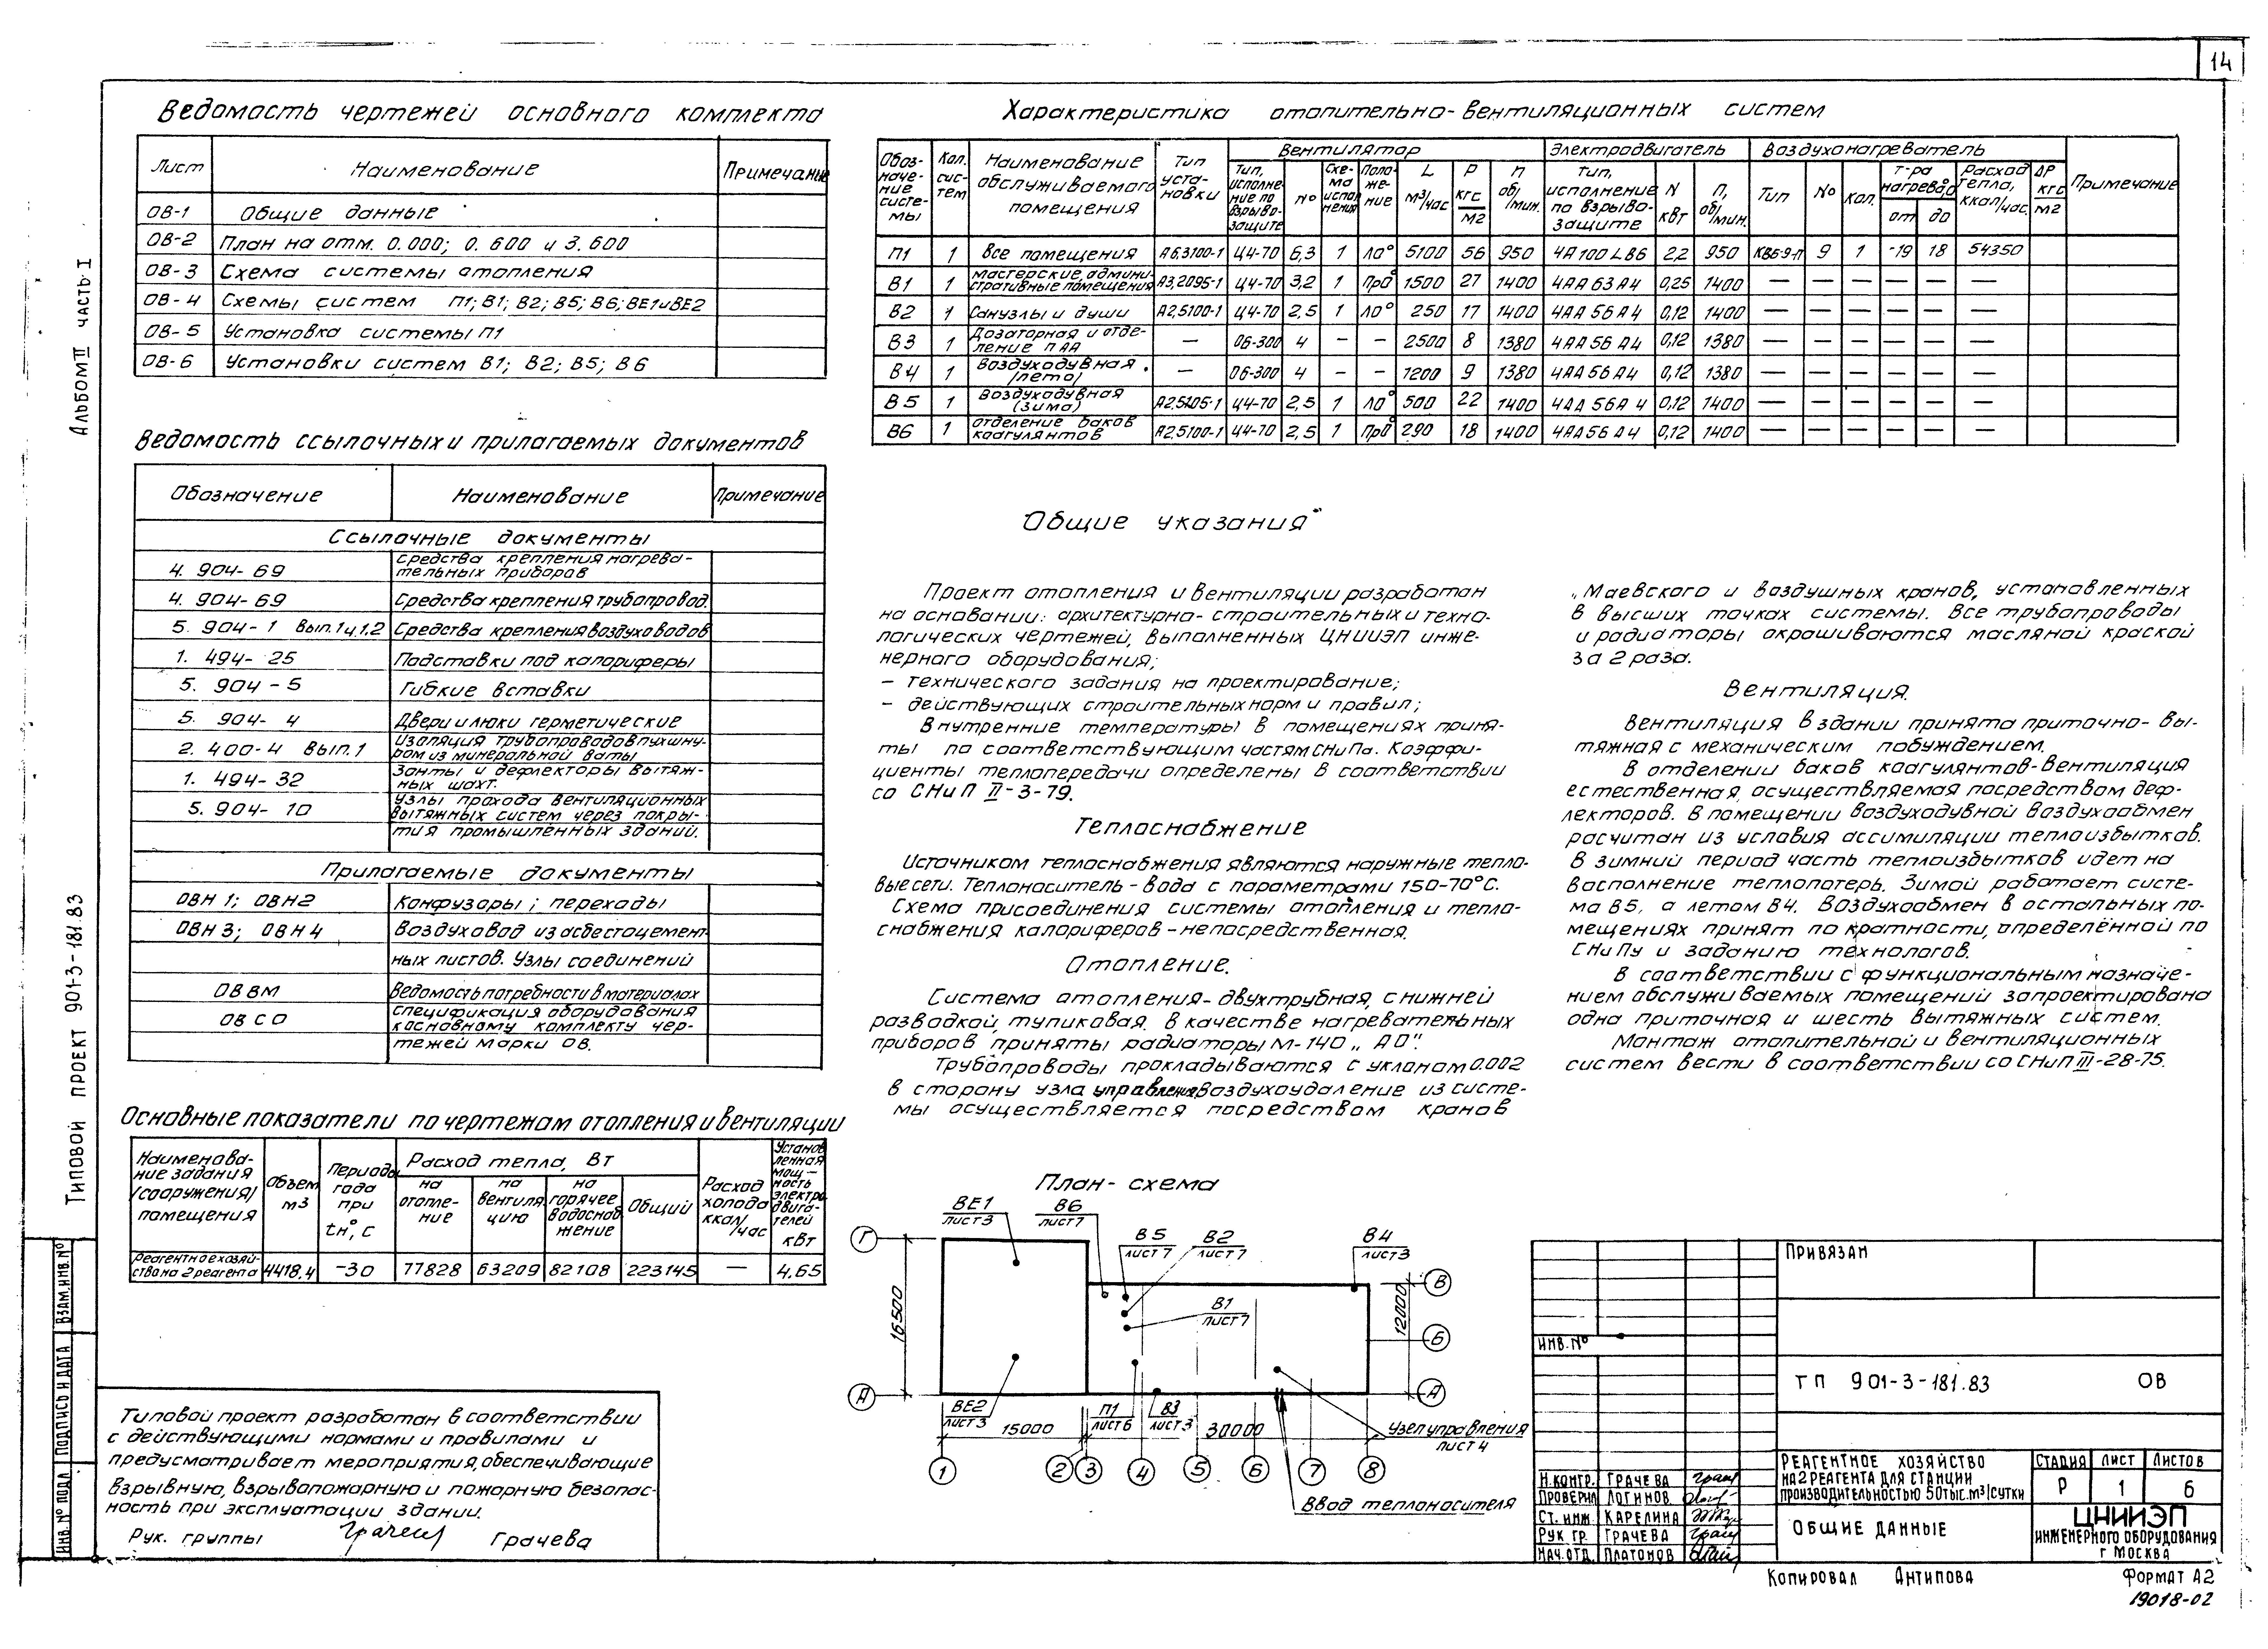 14
Альбом II часть I
Типовой проект 901-3-181.83
Ведомость чертежей основного комплекта
Лист Наименование Примечание
ОВ-1 Общие данные
ОВ-2 План на отм. 0.000; 0.600 и 3.600
ОВ-3 Схема системы отопления
ОВ-4 Схемы систем П1; В1; В2; В5; В6; ВЕ1 и ВЕ2
ОВ-5 Установка системы П1
ОВ-6 Установки систем В1; В2; В5; В6
Ведомость ссылочных и прилагаемых документов
Обозначение Наименование Примечание
Ссылочные документы
4. 904-69 Средства крепления нагрева-
тельных приборов
4. 904-69 Средства крепления трубопровод.
5. 904-1 Вып.1 ч.1,2 Средства крепления воздуховодов
1. 494-25 Подставки под калориферы
5. 904-5 Гибкие вставки
5. 904-4 Двери и люки герметические
2. 400-4 Вып.1 Изоляция трубопроводов пухшну-
ром из минеральной ваты
1. 494-32 Зонты и дефлекторы вытяж-
ных шахт.
5. 904-10 Узлы прохода вентиляционных
вытяжных систем через покры-
тия промышленных зданий.
Прилагаемые документы
ОВН 1; ОВН2 Конфузоры; переходы
ОВН3; ОВН4 Воздуховод из асбестоцемент-
ных листов. Узлы соединений
ОВ ВМ Ведомость потребности в материалах
ОВ СО Спецификация оборудования
к основному комплекту чер-
тежей марки ОВ.
Основные показатели по чертежам отопления и вентиляции
Наименова-
ние здания
/сооружения/
помещения
Объем
м3
Периоды
года
при
tн°, С
Расход тепла, Вт
на
отопле-
ние
на
вентиля-
цию
на
горячее
водоснаб-
жение
Общий
Расход
холода
ккал/
час
Установ-
ленная
мощ-
ность
электро-
двига-
телей
кВт
Реагентное хозяй-
ство на 2 реагента 4418,4 -30 77828 63209 82108 223145 — 4.65
Типовой проект разработан в соответствии
с действующими нормами и правилами и
предусматривает мероприятия, обеспечивающие
взрывную, взрывопожарную и пожарную безопас-
ность при эксплуатации здании.
Рук. группы Грачева
Характеристика отопительно-вентиляционных систем
Обоз-
наче-
ние
систе-
мы
Кол.
сис-
тем
Наименование
обслуживаемого
помещения
Тип
уста-
новки
Вентилятор
Тип,
исполне-
ние по
взрыво-
защите
№
Схе-
ма
испол-
нения
Поло-
же-
ние
L
м3/час
Р
кгс
м2
п
об/мин.
Электродвигатель
Тип,
исполнение
по взрыво-
защите
N
кВт
п,
об/мин.
Воздухонагреватель
Тип
№
Кол.
т-ра
нагрева,°С
от до
Расход
тепла,
ккал/час
ΔР
кгс
м2
Примечание
П1 1 Все помещения А6,3100-1 Ц4-70 6,3 1 Л0° 5100 56 950 4А100L86 2,2 950 КВБ-9-П 9 1 -19 18 54350
В1 1 мастерские, админи-
стративные помещения А3,2095-1 Ц4-70 3,2 1 Пр0° 1500 27 1400 4АА63А4 0,25 1400 — — — — — —
В2 1 Санузлы и души А2,5100-1 Ц4-70 2,5 1 Л0° 250 17 1400 4АА56А4 0,12 1400 — — — — — —
В3 1 Дозаторная и отде-
ление ПАА — 06-300 4 — — 2500 8 1380 4АА56А4 0,12 1380 — — — — — —
В4 1 Воздуходувная
/лето/ — 06-300 4 — — 1200 9 1380 4АА56А4 0,12 1380 — — — — — —
В5 1 Воздуходувная
(зима) А2,5105-1 Ц4-70 2,5 1 Л0° 500 22 1400 4АА56А4 0,12 1400 — — — — — —
В6 1 отделение баков
коагулянтов А2,5100-1 Ц4-70 2,5 1 Пр0° 290 18 1400 4АА56А4 0,12 1400 — — — — — —
Общие указания
Проект отопления и вентиляции разработан
на основании: архитектурно-строительных и техно-
логических чертежей, выполненных ЦНИИЭП инже-
нерного оборудования;
– технического задания на проектирование;
– действующих строительных норм и правил;
Внутренние температуры в помещениях приня-
ты по соответствующим частям СНиПа. Коэффи-
циенты теплопередачи определены в соответствии
со СНиП II-3-79.
Теплоснабжение
Источником теплоснабжения являются наружные тепло-
вые сети. Теплоноситель - вода с параметрами 150-70°С.
Схема присоединения системы отопления и тепло-
снабжения калориферов - непосредственная.
Отопление.
Система отопления - двухтрубная, с нижней
разводкой, тупиковая. В качестве нагревательных
приборов приняты радиаторы М-140 „АО".
Трубопроводы прокладываются с уклоном 0.002
в сторону узла управления воздухоудаление из систе-
мы осуществляется посредством кранов
„Маевского и воздушных кранов, установленных
в высших точках системы. Все трубопроводы
и радиаторы окрашиваются масляной краской
за 2 раза.
Вентиляция.
Вентиляция в здании принята приточно-вы-
тяжная с механическим побуждением.
В отделении баков коагулянтов-вентиляция
естественная, осуществляемая посредством деф-
лекторов. В помещении воздуходувной воздухообмен
расчитан из условия ассимиляции теплоизбытков.
В зимний период часть теплоизбытков идет на
восполнение теплопотерь. Зимой работает систе-
ма В5, а летом В4. Воздухообмен в остальных по-
мещениях принят по кратности, определённой по
СНиПу и заданию технологов.
В соответствии с функциональным назначе-
нием обслуживаемых помещений запроектирована
одна приточная и шесть вытяжных систем.
Монтаж отопительной и вентиляционных
систем вести в соответствии со СНиП III-28-75.
План-схема
ВЕ1
лист 3
В6
лист 7
В5
лист 7
В2
лист 7
В4
лист 3
В1
лист 7
Г
А
16500
В
Б
А
12000
ВЕ2
лист 3
П1
лист 6
В3
лист 3
15000
30000
Узел управления
лист 4
1 2 3 4 5 6 7 8
Ввод теплоносителя
Привязан
Инв.№
ТП 901-3-181.83 ОВ
Реагентное хозяйство
на 2 реагента для станции
производительностью 50 тыс. м3/сутки
Стадия Лист Листов
Р 1 6
Общие данные
ЦНИИЭП
инженерного оборудования
г Москва
Н.контр. Грачева
Проверил Логинов
Ст. инж. Карелина
Рук гр. Грачева
Нач.отд. Платонов
Инв.№ подл. Подпись и дата Взам.инв.№
Копировал Антипова
Формат А2
19018-02